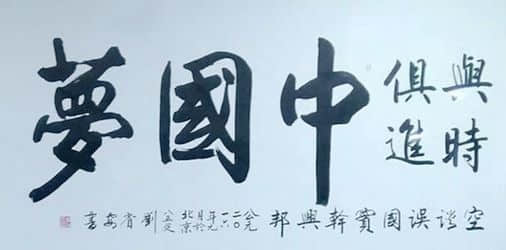 與時
俱進
中國夢
空談誤國實幹興邦
公元二〇一六年元月於北京
劉
書